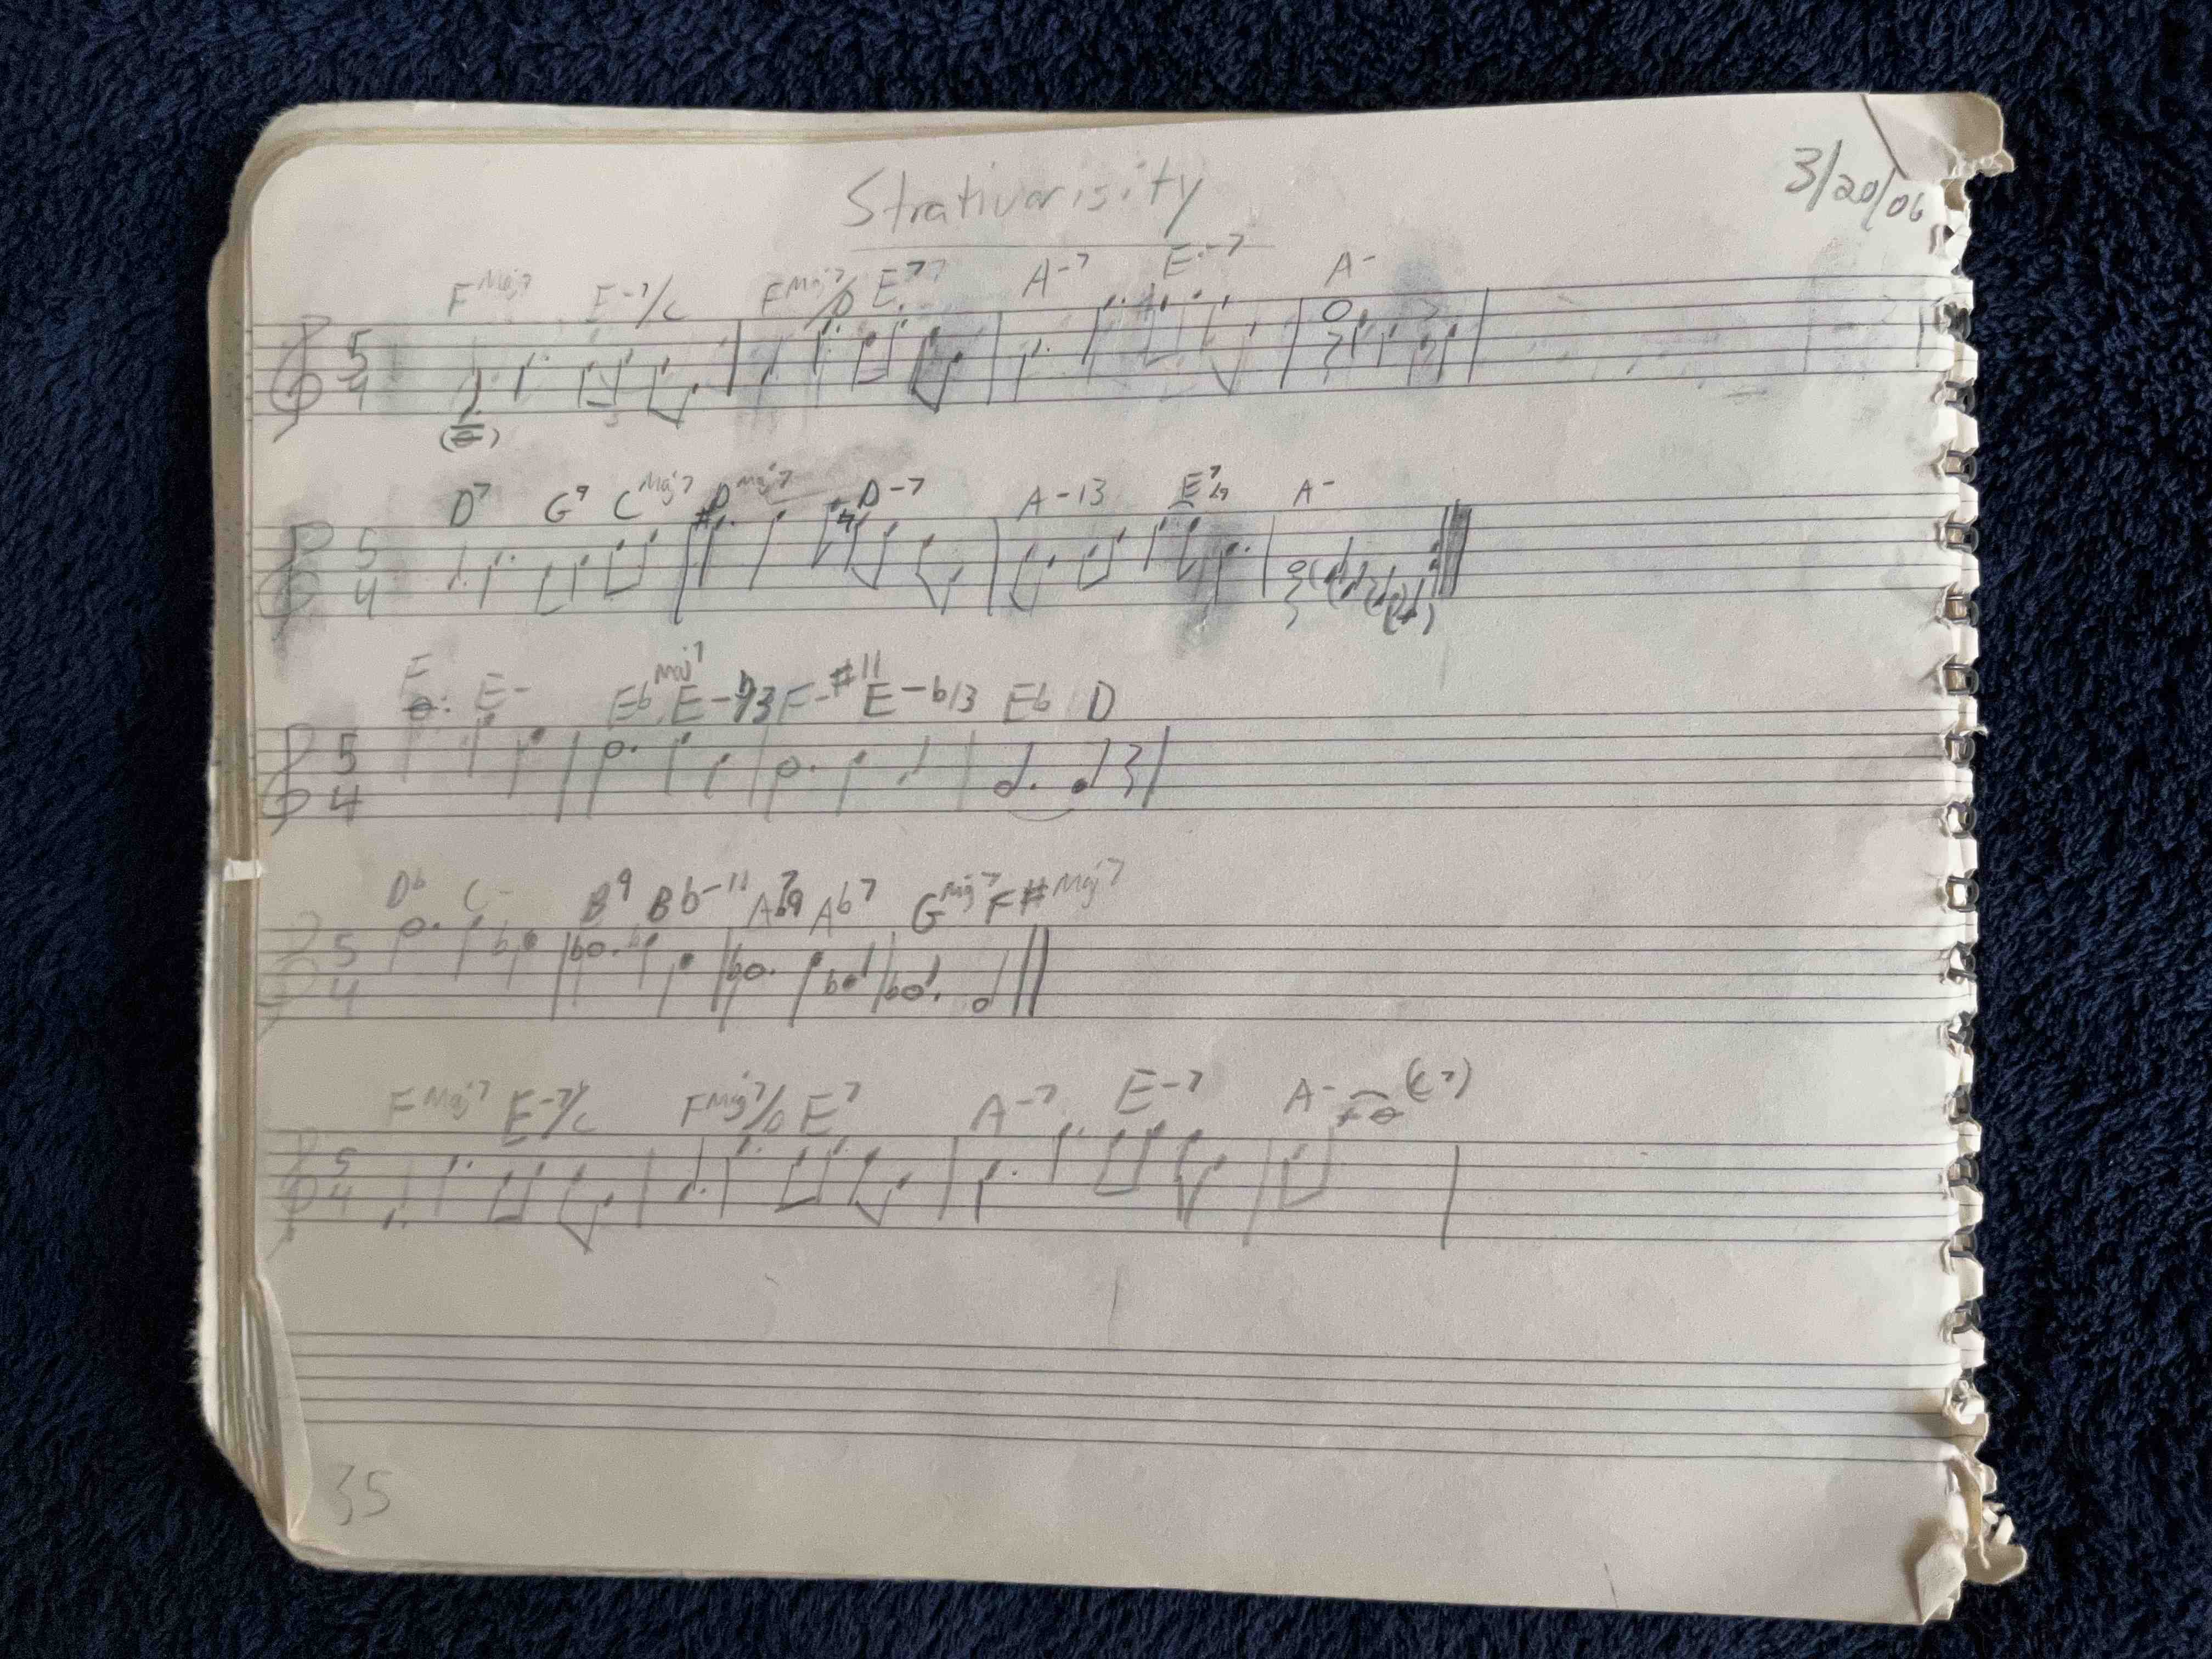 Strativarisity
3/20/06
F Maj7 E-7/C F Maj7/D E7 A-7 E-7 A-
5
4
D7 G9 C Maj7 D Maj7 D-7 A-13 E7 A-
5
4
F E- Eb Maj7 E-b13 F-#11 E-b13 Eb D
5
4
Db C- B9 Bb-11 A7b9 Ab7 G Maj7 F# Maj7
5
4
F Maj7 E-7/C F Maj7/D E7 A-7 E-7 A- (C7)
5
4
35